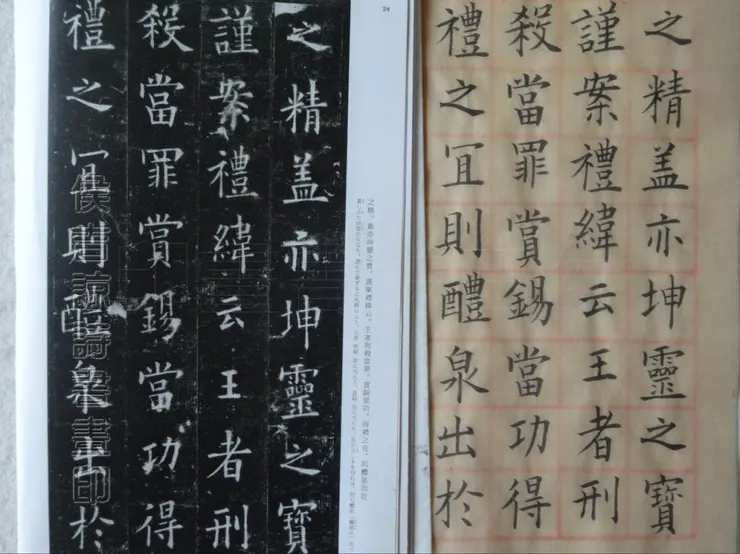 之精盖亦坤靈之寶
謹案禮緯云王者刑
殺當罪賞錫當功得
禮之冝則醴泉出於
24
之精、蓋亦坤靈之寶。謹案禮緯云、王者刑殺當罪、賞錫當功、得禮之宜、則醴泉出於
之精盖亦坤靈之寶
謹案禮緯云王者刑
殺當罪賞錫當功得
禮之冝則醴泉出於
侯吉諒詩書畫印